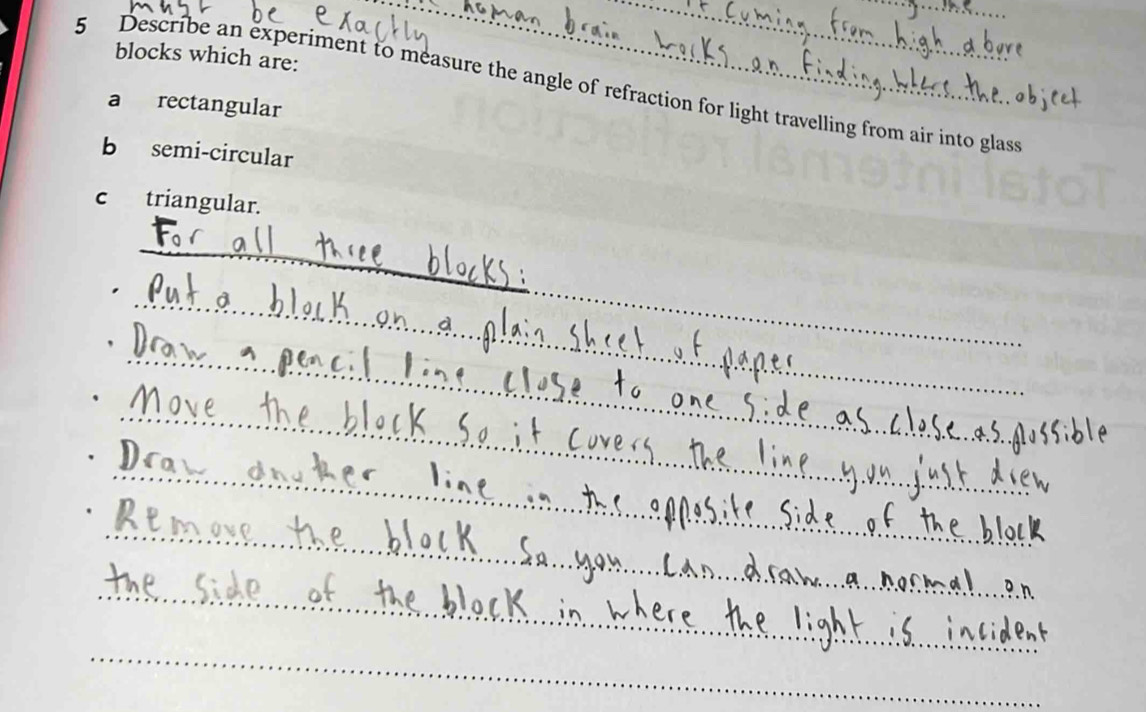 must be exactly
human brain works on finding where the object
it coming from high above
5 Describe an experiment to measure the angle of refraction for light travelling from air into glass
blocks which are:
a rectangular
b semi-circular
c triangular.
For all three blocks:
· Put a block on a plain sheet of paper
· Draw a pencil line close to one side as close as possible
· Move the block so it covers the line you just drew
· Draw another line in the opposite side of the block
· Remove the block so you can draw a normal on
the side of the block in where the light is incident
Total internal reflection